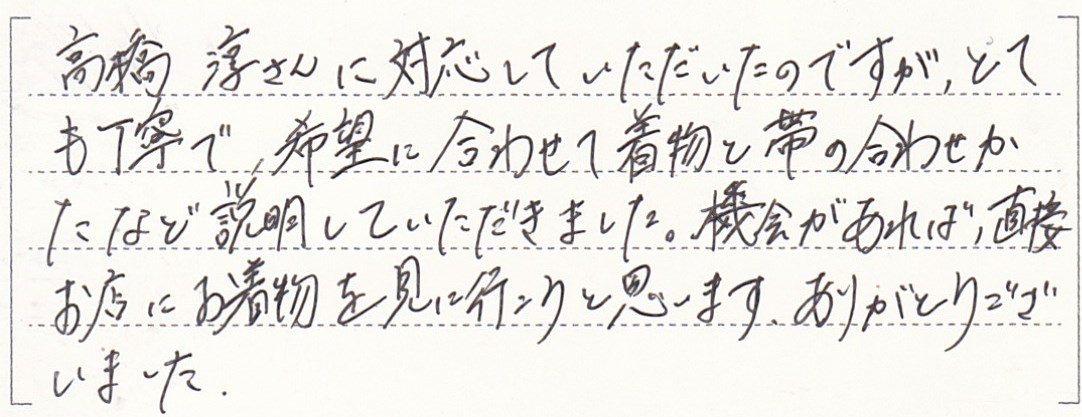 高橋 淳さんに対応していただいたのですが、とて
も丁寧で、希望に合わせて着物と帯の合わせか
たなど説明していただきました。機会があれば、直接
お店にお着物を見に行こうと思います。ありがとうござ
いました。